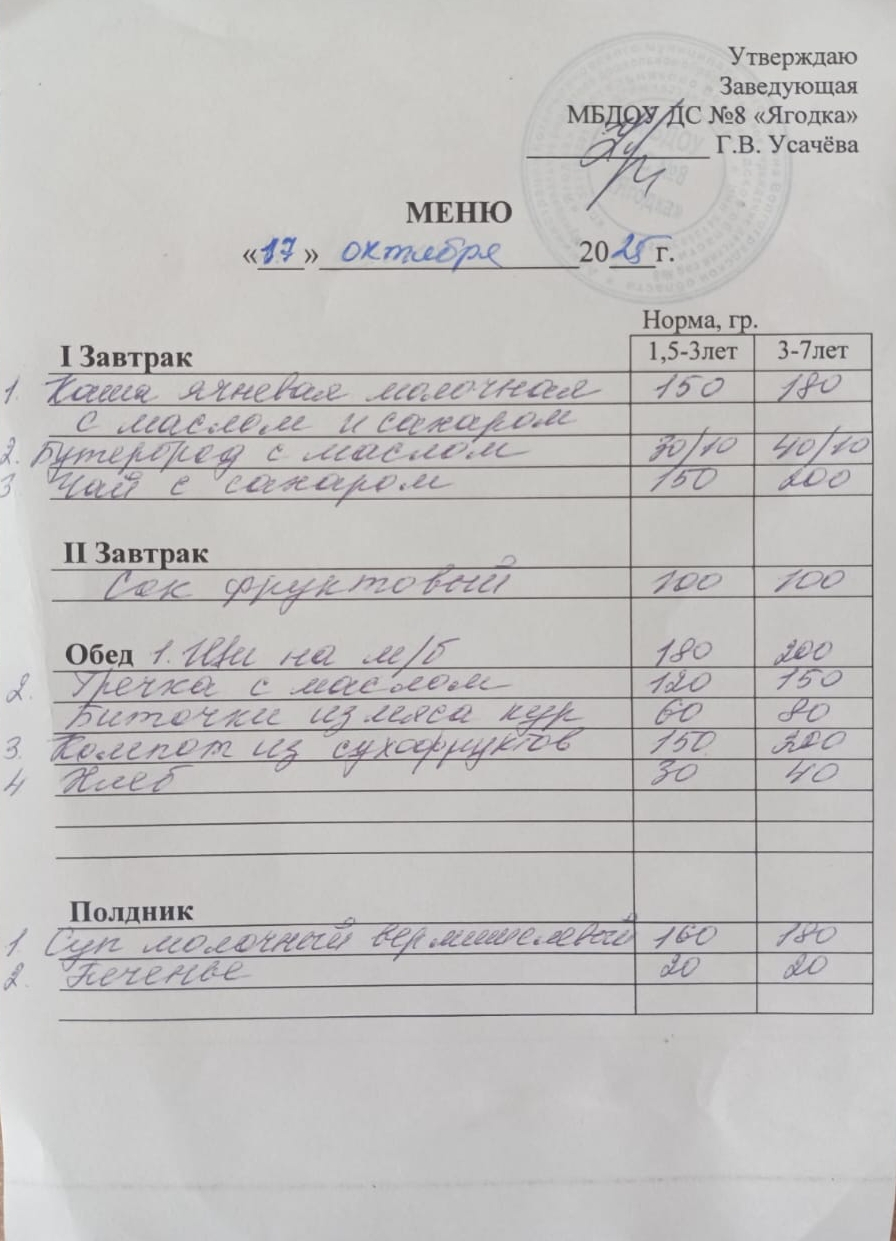 Утверждаю
Заведующая
МБДОУ ДС №8 «Ягодка»
Г.В. Усачёва
МЕНЮ
«17» октября 2025 г.
Норма, гр.
I Завтрак 1,5-3лет 3-7лет
1. Каша ячневая молочная 150 180
с маслом и сахаром
2. Бутерброд с маслом 30/10 40/10
3 Чай с сахаром 150 200
II Завтрак
Сок фруктовый 100 100
Обед 1. Щи на м/б 180 200
2. Гречка с маслом 120 150
Биточки из мяса кур 60 80
3. Компот из сухофруктов 150 200
4 Хлеб 30 40
Полдник
1. Суп молочный вермишелевый 160 180
2. Печенье 20 20